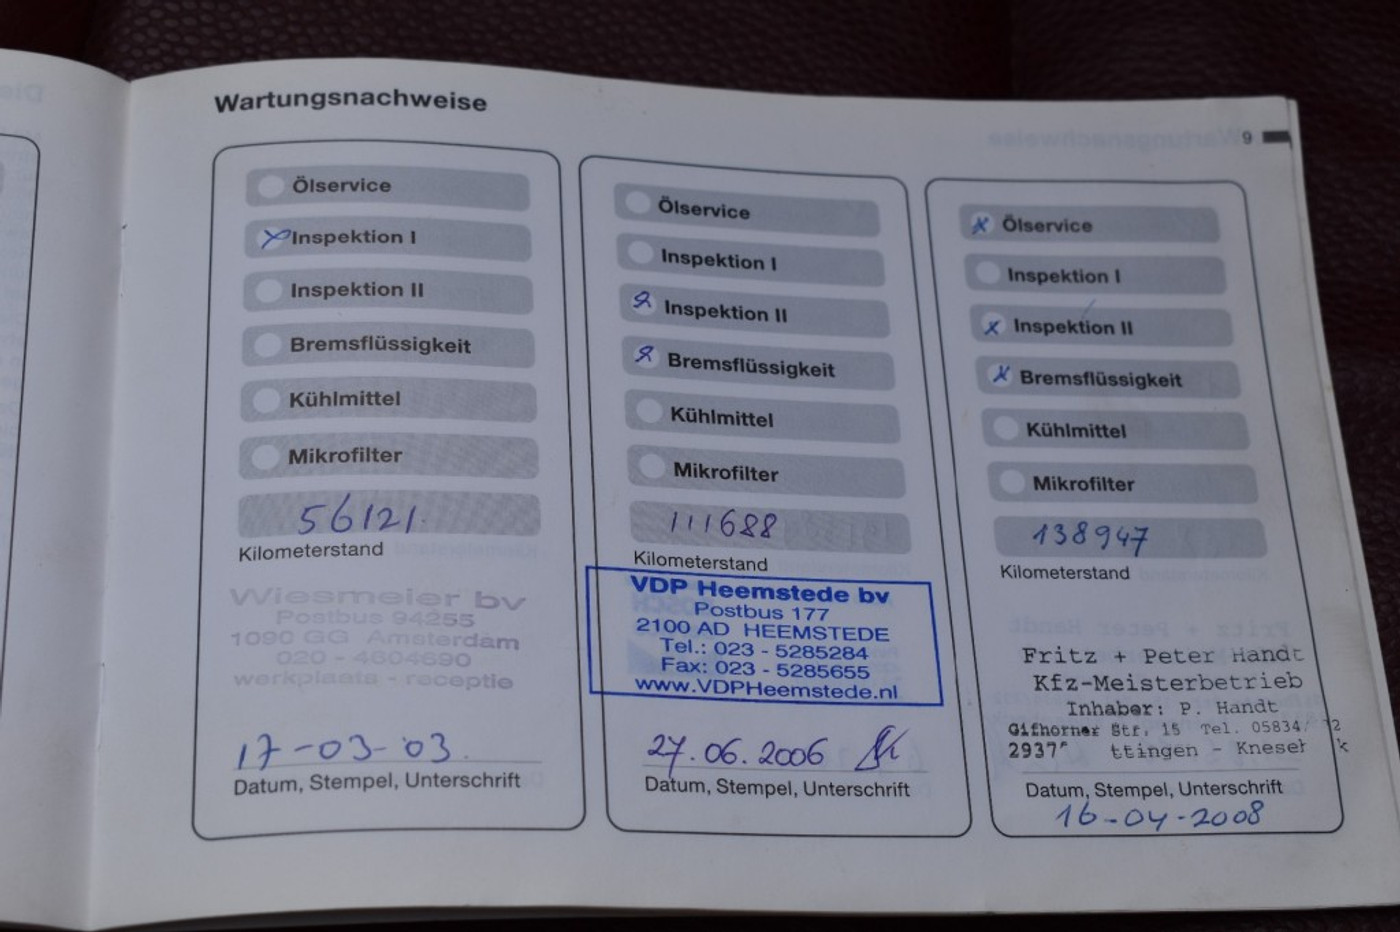 Wartungsnachweise
9
Ölservice
Inspektion I
Inspektion II
Bremsflüssigkeit
Kühlmittel
Mikrofilter
56121
Kilometerstand
Wiesmeier bv
Postbus 94255
1090 GG Amsterdam
020 - 4604690
werkplaats - receptie
17-03-03.
Datum, Stempel, Unterschrift
Ölservice
Inspektion I
Inspektion II
Bremsflüssigkeit
Kühlmittel
Mikrofilter
111688
Kilometerstand
VDP Heemstede bv
Postbus 177
2100 AD HEEMSTEDE
Tel.: 023 - 5285284
Fax: 023 - 5285655
www.VDPHeemstede.nl
27.06.2006
Datum, Stempel, Unterschrift
Ölservice
Inspektion I
Inspektion II
Bremsflüssigkeit
Kühlmittel
Mikrofilter
138947
Kilometerstand
Fritz + Peter Handt
Kfz-Meisterbetrieb
Inhaber: P. Handt
Gifhorner Str. 15 Tel. 05834/
ttingen - Knesek
Datum, Stempel, Unterschrift
16-04-2008